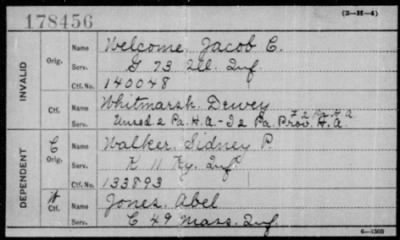 178456
(3-H-4)
INVALID
Orig.
Name Welcome, Jacob C.
Serv. G 73 Ill. Inf
Ctf. No. 140048
Ctf.
Name Whitmarsh, Dewey
F 2 Pa. H.A
Serv. Unasd 2 Pa. H.A. - I 2 Pa. Prov. H.A.
DEPENDENT
C
Orig.
Name Walker, Sidney P.
Serv. K 11 Ky. Inf
Ctf. No. 133893
Ctf.
Name Jones, Abel
Serv. C 49 Mass. Inf